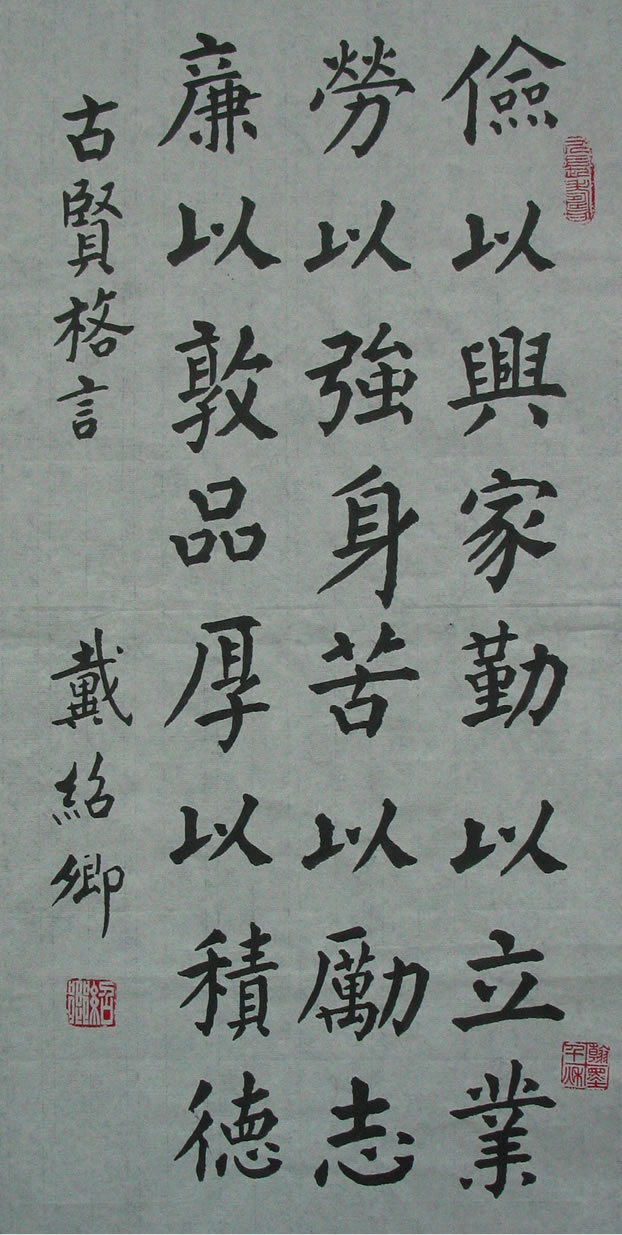 儉以興家勤以立業
勞以強身苦以勵志
廉以敦品厚以積德
古賢格言
戴紹卿
翰墨千秋
紹卿